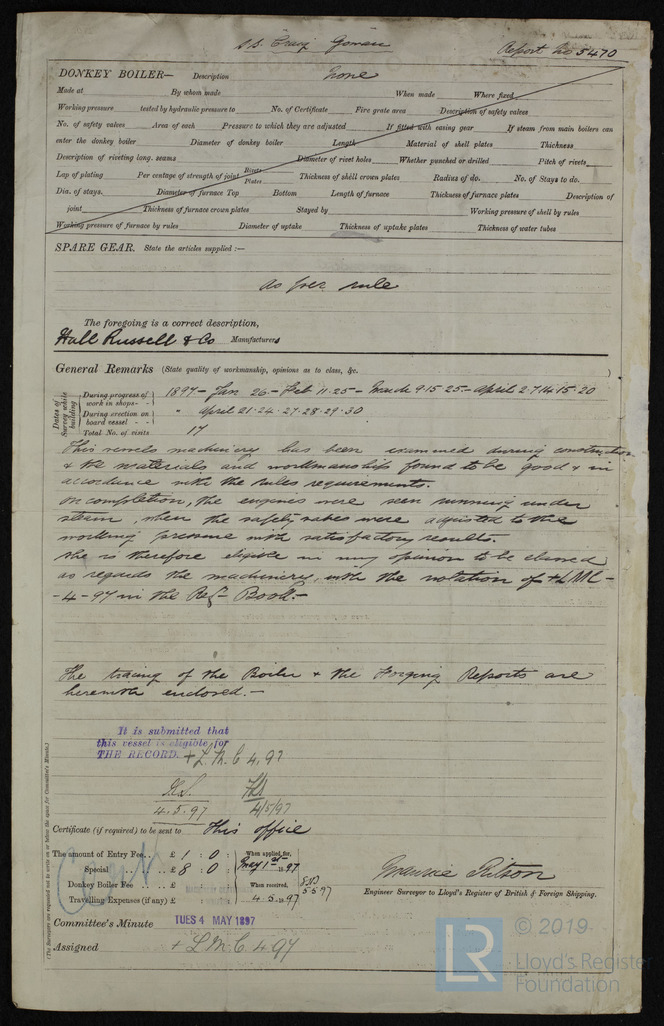 S.S. Craig Gowan
Report No 5470
DONKEY BOILER— Description None
Made at By whom made When made Where fixed
Working pressure tested by hydraulic pressure to No. of Certificate Fire grate area Description of safety valves
No. of safety valves Area of each Pressure to which they are adjusted If fitted with easing gear If steam from main boilers can
enter the donkey boiler Diameter of donkey boiler Length Material of shell plates Thickness
Description of riveting long. seams Diameter of rivet holes Whether punched or drilled Pitch of rivets
Lap of plating Per centage of strength of joint Rivets Plates Thickness of shell crown plates Radius of do. No. of Stays to do.
Dia. of stays. Diameter of furnace Top Bottom Length of furnace Thickness of furnace plates Description of
joint Thickness of furnace crown plates Stayed by Working pressure of shell by rules
Working pressure of furnace by rules Diameter of uptake Thickness of uptake plates Thickness of water tubes
SPARE GEAR. State the articles supplied :—
as per rule
The foregoing is a correct description,
Hall Russell & Co Manufacturers
General Remarks (State quality of workmanship, opinions as to class, &c. )
Dates of Survey while building
During progress of work in shops - - 1897 - Jan 26 - Feb 11·25 - March 9·15·25 - April 2·7·14·15·20
During erection on board vessel - - " April 21·24·27·28·29·30
Total No. of visits 17
This vessels machinery has been examined during construction
& the materials and workmanship found to be good & in
accordance with the rules requirements.
On completion, the engines were seen running under
steam, when the safety valves were adjusted to the
working pressure with satisfactory results.
She is therefore eligible in my opinion to be classed
as regards the machinery, with the notation of +LMC-
-4-97 in the Regr Book.-
The tracing of the Boiler & the Forging Reports are
herewith enclosed.-
It is submitted that
this vessel is eligible for
THE RECORD. + L.M.C 4.97
4.5.97 4/5/97
Certificate (if required) to be sent to This office
The amount of Entry Fee . . £ 1 : 0 : When applied for, May 1st 1897
Special . . . . £ 8 : 0 :
Donkey Boiler Fee . . £ : : When received, 5.5.97
Travelling Expenses (if any) £ : : 4.5.97
Engineer Surveyor to Lloyd's Register of British & Foreign Shipping.
Committee's Minute TUES 4 MAY 1897
Assigned + L.M.C. 4.97
(The Surveyors are requested not to write on or below the space for Committee's Minute.)
© 2019
LR
Lloyd's Register
Foundation